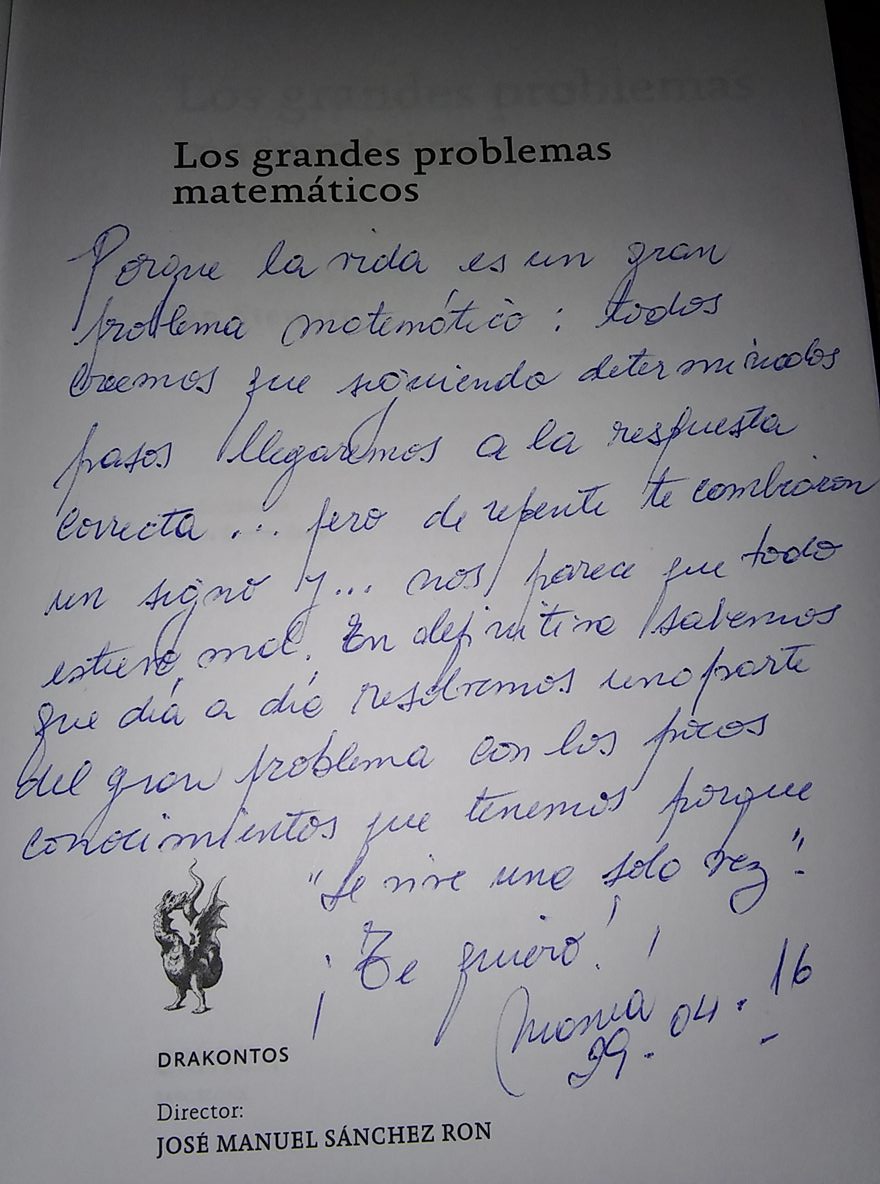 Los grandes problemas
matemáticos
Porque la vida es un gran
problema matemático: todos
creemos que siguiendo determinados
pasos llegaremos a la respuesta
correcta... pero de repente te cambiaron
un signo y... nos parece que todo
estuvo mal. En definitiva sabemos
que día a día resolvemos una parte
del gran problema con los pocos
conocimientos que tenemos porque
"se vive una sola vez".
¡Te quiero!
29.04.16
DRAKONTOS
Director:
JOSÉ MANUEL SÁNCHEZ RON